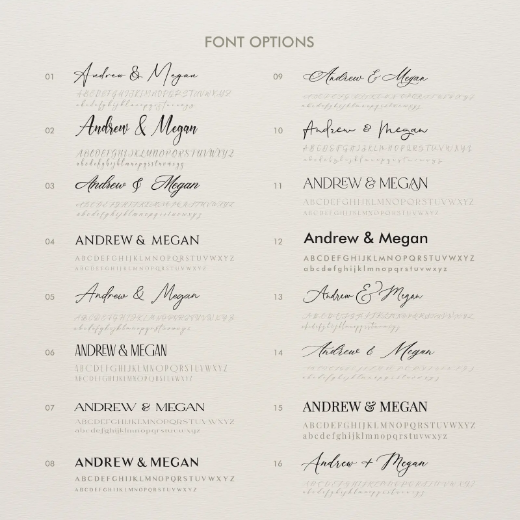 FONT OPTIONS
01 Andrew & Megan
ABCDEFGHIJKLMNOPQRSTUVWXYZ
abcdefghijklmnopqrstuvwxyz
02 Andrew & Megan
ABCDEFGHIJKLMNOPQRSTUVWXYZ
abcdefghijklmnopqrstuvwxyz
03 Andrew & Megan
ABCDEFGHIJKLMNOPQRSTUVWXYZ
abcdefghijklmnopqrstuvwxyz
04 ANDREW & MEGAN
ABCDEFGHIJKLMNOPQRSTUVWXYZ
ABCDEFGHIJKLMNOPQRSTUVWXYZ
05 Andrew & Megan
ABCDEFGHIJKLMNOPQRSTUVWXYZ
abcdefghijklmnopqrstuvwxyz
06 ANDREW & MEGAN
ABCDEFGHIJKLMNOPQRSTUVWXYZ
ABCDEFGHIJKLMNOPQRSTUVWXYZ
07 ANDREW & MEGAN
ABCDEFGHIJKLMNOPQRSTUVWXYZ
abcdefghijklmnopqrstuvwxyz
08 ANDREW & MEGAN
ABCDEFGHIJKLMNOPQRSTUVWXYZ
ABCDEFGHIJKLMNOPQRSTUVWXYZ
09 Andrew & Megan
ABCDEFGHIJKLMNOPQRSTUVWXYZ
abcdefghijklmnopqrstuvwxyz
10 Andrew & Megan
ABCDEFGHIJKLMNOPQRSTUVWXYZ
abcdefghijklmnopqrstuvwxyz
11 ANDREW & MEGAN
ABCDEFGHIJKLMNOPQRSTUVWXYZ
ABCDEFGHIJKLMNOPQRSTUVWXYZ
12 Andrew & Megan
ABCDEFGHIJKLMNOPQRSTUVWXYZ
abcdefghijklmnopqrstuvwxyz
13 Andrew & Megan
ABCDEFGHIJKLMNOPQRSTUVWXYZ
abcdefghijklmnopqrstuvwxyz
14 Andrew & Megan
ABCDEFGHIJKLMNOPQRSTUVWXYZ
abcdefghijklmnopqrstuvwxyz
15 ANDREW & MEGAN
ABCDEFGHIJKLMNOPQRSTUVWXYZ
abcdefghijklmnopqrstuvwxyz
16 Andrew + Megan
ABCDEFGHIJKLMNOPQRSTUVWXYZ
abcdefghijklmnopqrstuvwxyz